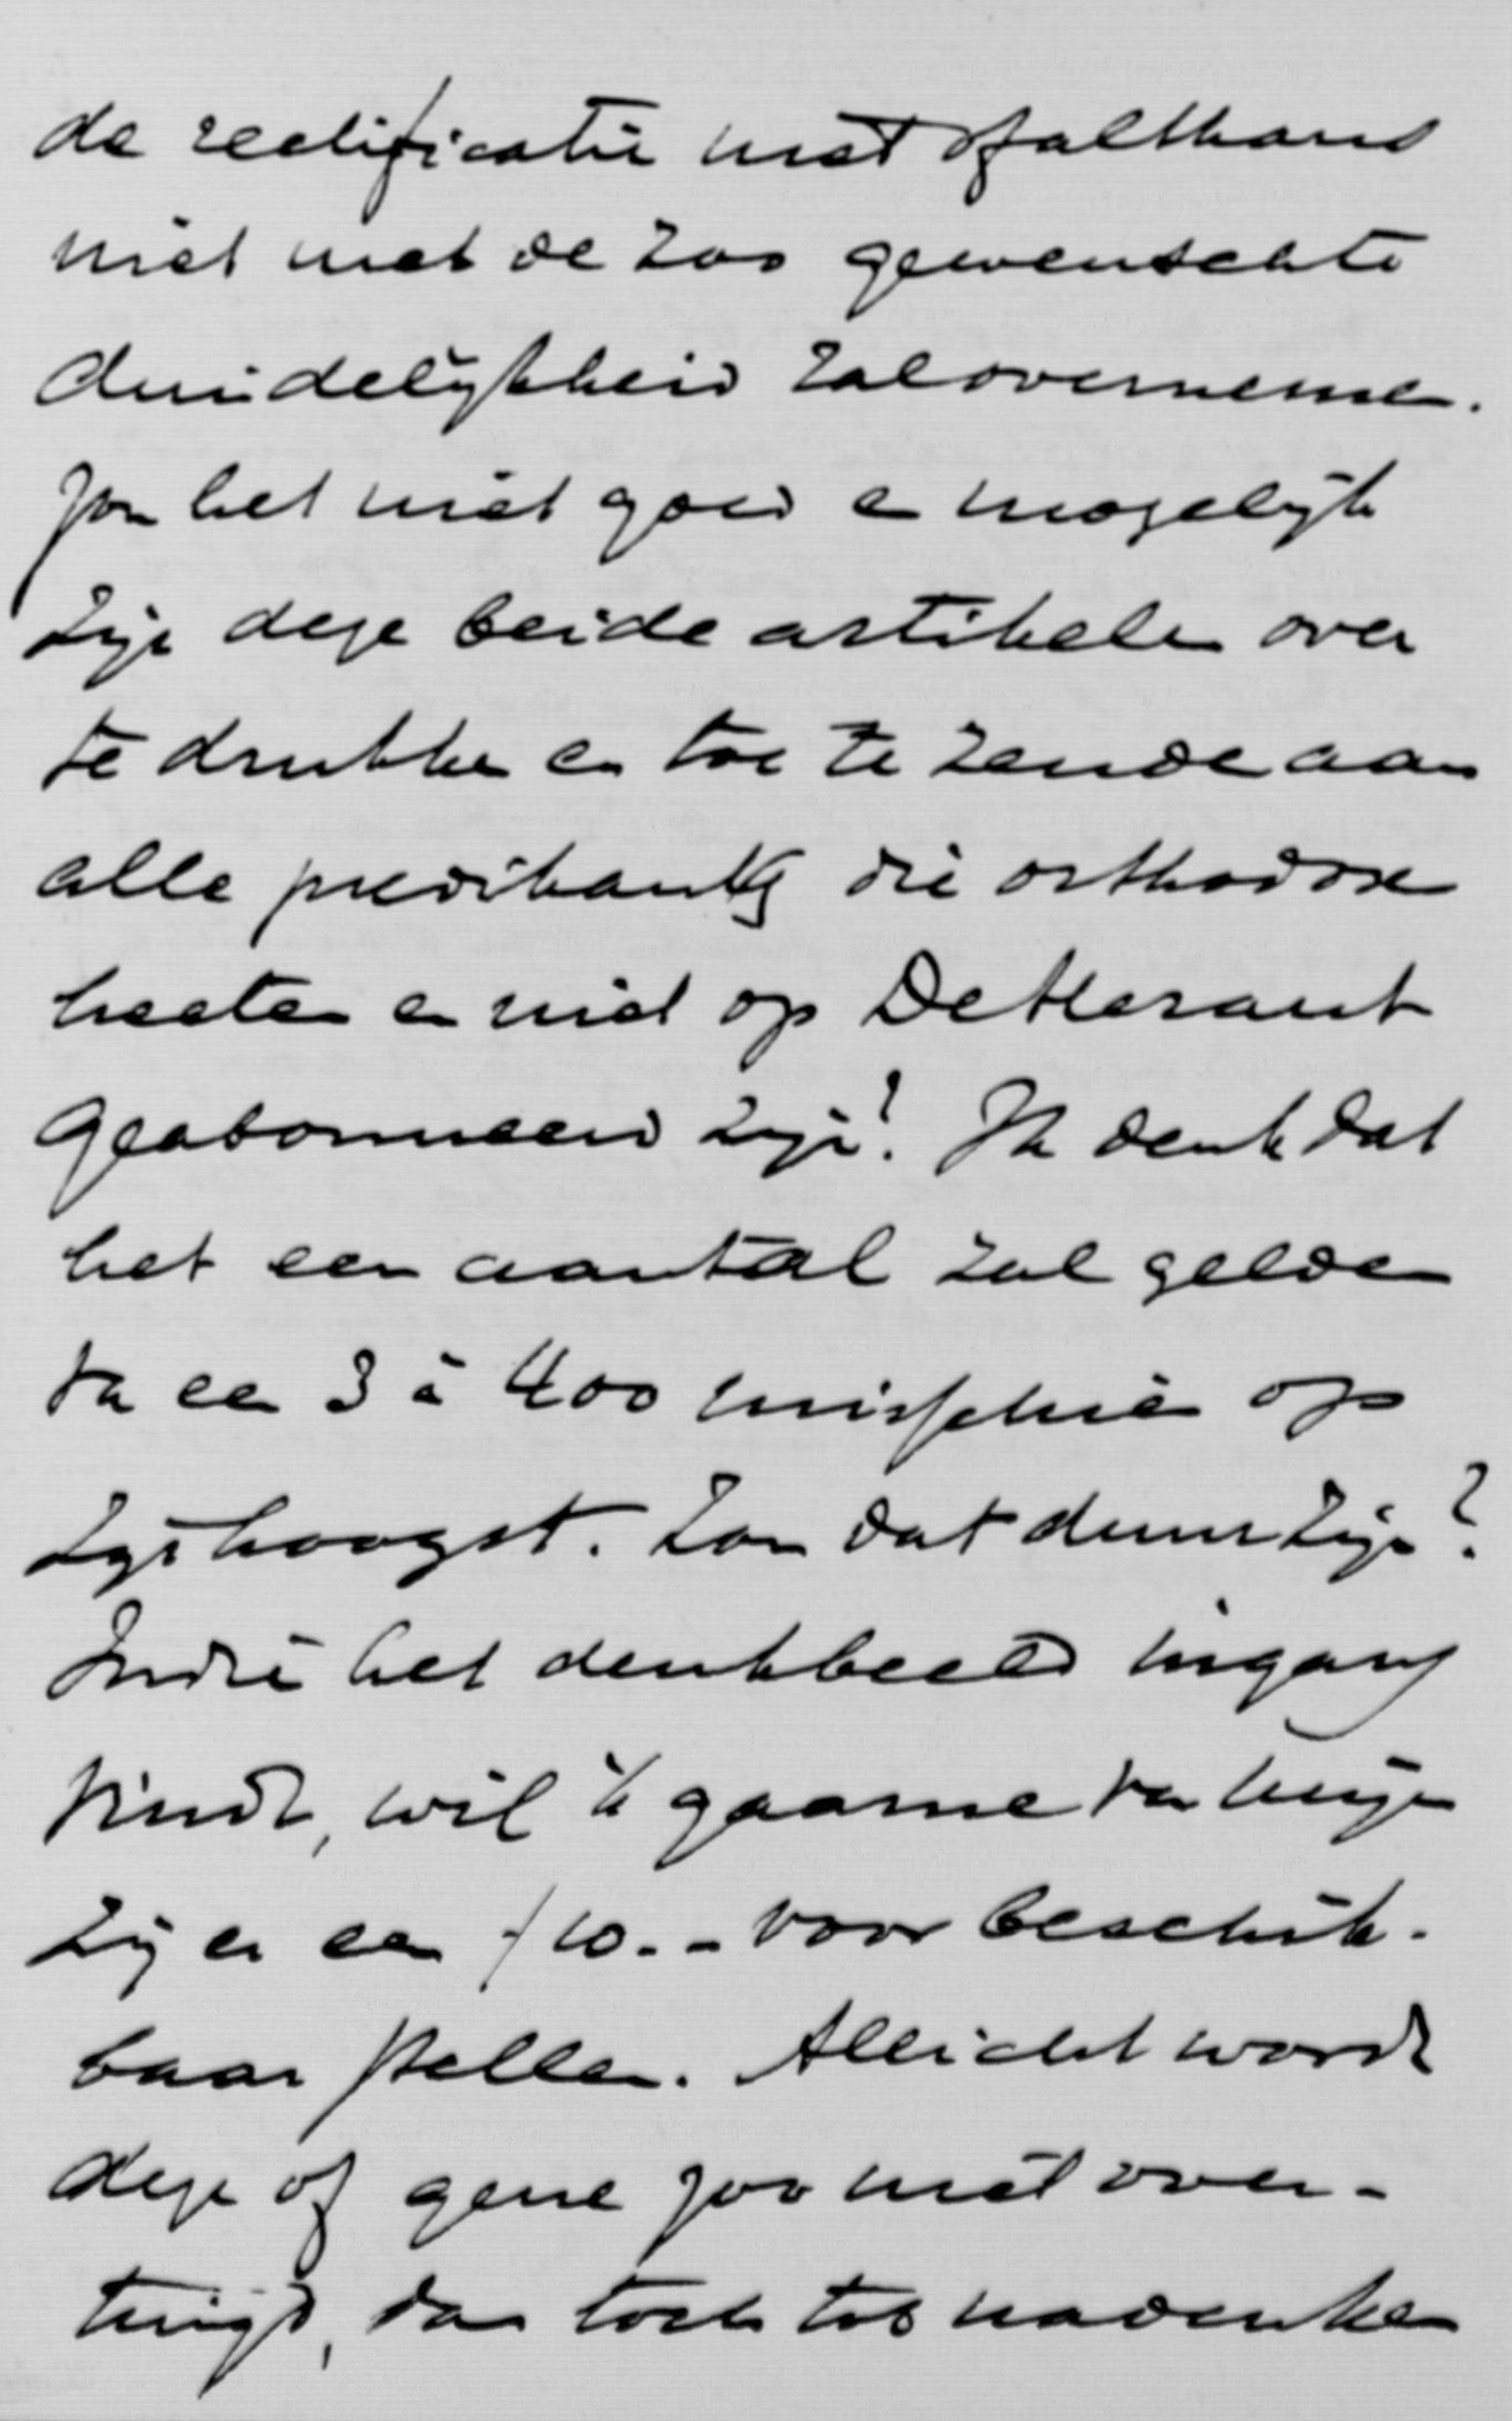 de rectificatie niet of althans
niet met de zoo gewenschte
duidelijkheid zal overnemen.
Zou het niet goed en mogelijk
zijn deze beide artikelen over
te drukken en toe te zenden aan
alle predikanten die orthodox
heeten en niet op De Heraut
geabonneerd zijn? Ik denk dat
het een aantal zal gelden
van een 3 à 400 misschien op
zijn hoogst. Zou dat duur zijn?
Indien het denkbeeld ingang
vindt, wil ik gaarne van mijn
zijde een ƒ 10.- voor beschik-
baar stellen. Allicht wordt
deze of gene zoo niet over-
tuigd, dan toch tot nadenken